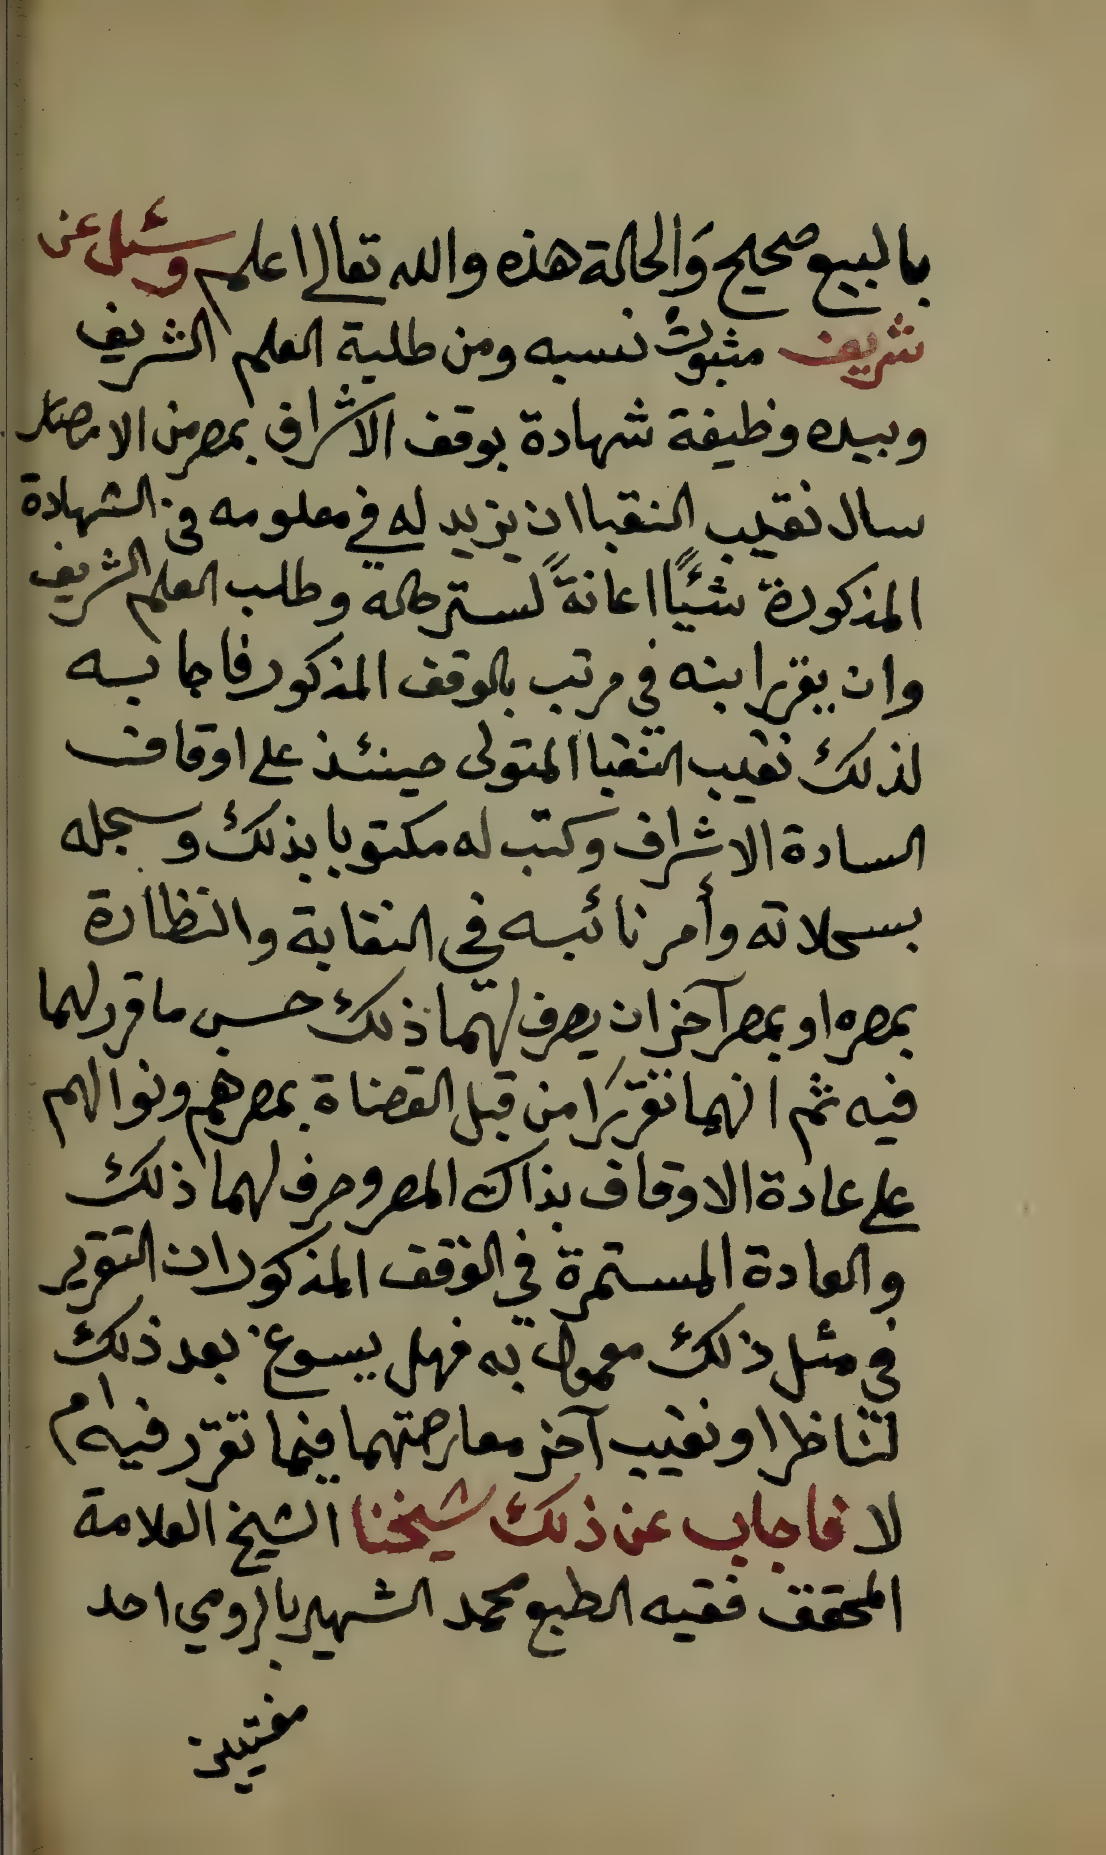 بالبيع صحيح والحالة هذه والله تعالى اعلم وسئل عن
شريف مثبوت نسبه ومن طلبة العلم الشريف
وبيده وظيفة شهادة بوقف الاشراف بمصر من الامصار
سال نقيب النقبا ان يزيد له في معلومه في الشهادة
المذكورة شئًا اعانةً لستر حاله وطلب العلم الشريف
وان يقرر ابنه في مرتب بالوقف المذكور فاجابه
لذلك نقيب النقبا المتولى حينئذ على اوقاف
السادة الاشراف وكتب له مكتوبا بذلك وسجله
بسجلاته وأمر نائبه في النقابة والنظارة
بمصره او بمصر آخر ان يصرف لهما ذلك حسب ما قرر لهما
فيه ثم انهما تقررا من قبل القضاة بمصرهم ونوالهم
على عادة الاوقاف بذاك المصر وصرف لهما ذلك
والعادة المستمرة في الوقف المذكور ان التقرير
في مثل ذلك معمول به فهل يسوغ بعد ذلك
لناظر او نقيب آخر معارضتهما فيما تقرر فيه ام
لا فاجاب عن ذلك شيخنا الشيخ العلامة
المحقق فقيه الطبع محمد الشهير بالرومي احد
مفتيين